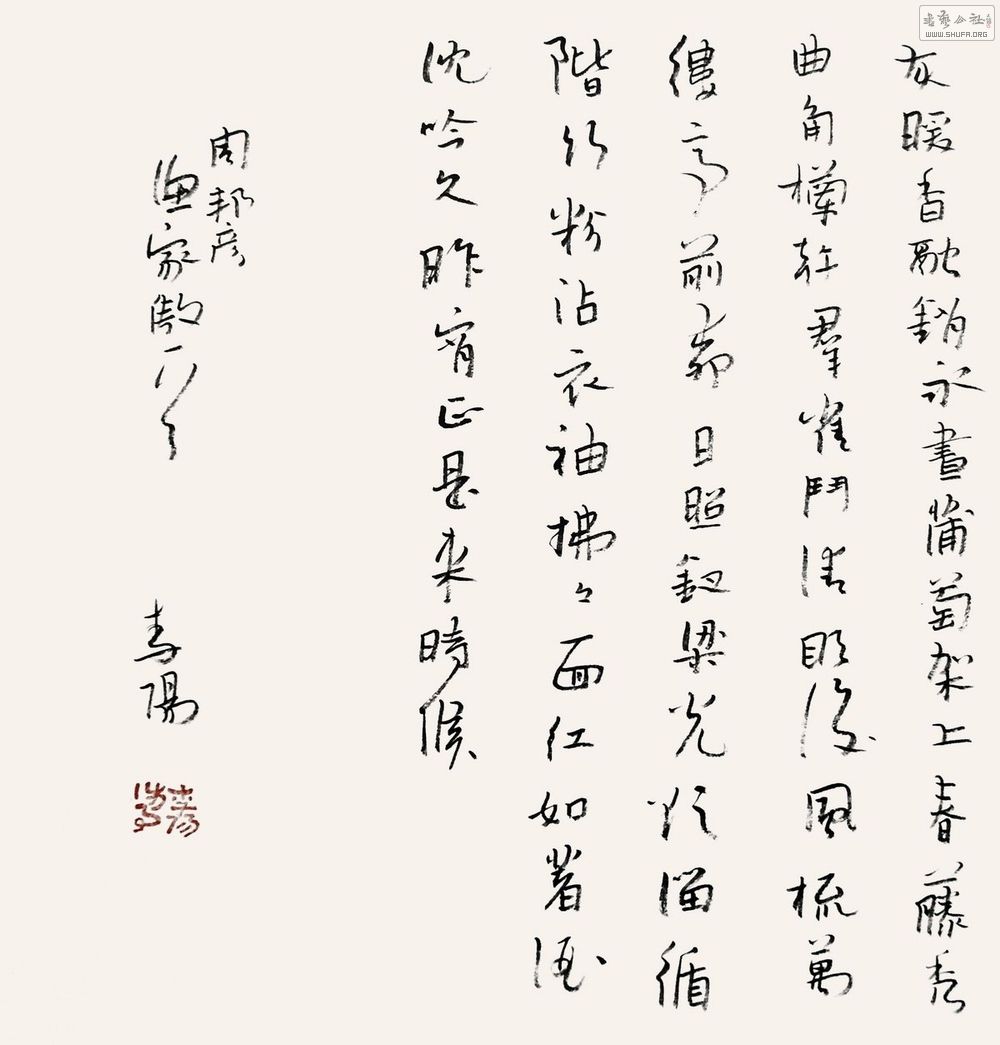 灰暖香融銷永晝蒲萄架上春藤秀
曲角欄幹羣雀鬥清明後風梳萬
縷亭前柳日照釵梁光欲溜循
階竹粉沾衣袖拂々面紅如著酒
沈吟久昨宵正是来時候
周邦彦
漁家傲一
陽
書藝公社
WWW.SHUFA.ORG